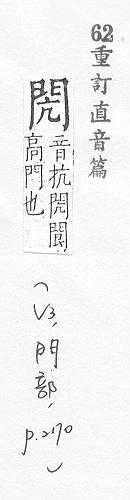 62重訂直音篇
閌
音抗閌閬
高門也
(V3,門部,p.2170)